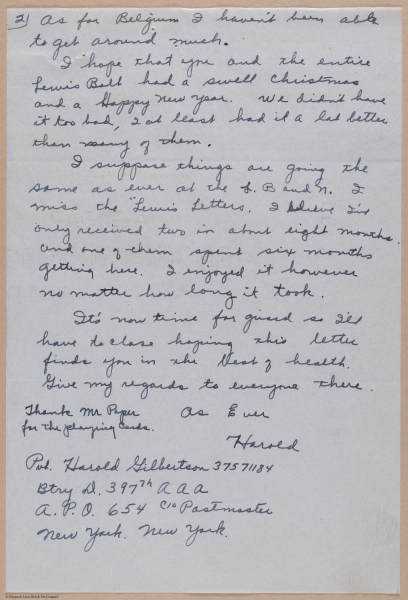 2) As for Belgium I haven't been able
to get around much.
I hope that you and the entire
Lewis Bolt had a swell Christmas
and a Happy New Year. We didn't have
it too bad, I at least had it a lot better
than many of them.
I suppose things are going the
same as ever at the L. B and N. I
miss the "Lewis Letters. I believe I've
only received two in about eight months.
and one of them spent six months
getting here. I enjoyed it however
no matter how long it took.
It's now time for guard so I'll
have to close hoping this letter
finds you in the best of health.
Give my regards to everyone there.
Thank Mr Paper
for the playing cards.
As Ever
Harold
Pvt. Harold Gilbertson 37571184
Btry D. 397th A A A
A. P. O. 654 c/o Postmaster
New York. New York.